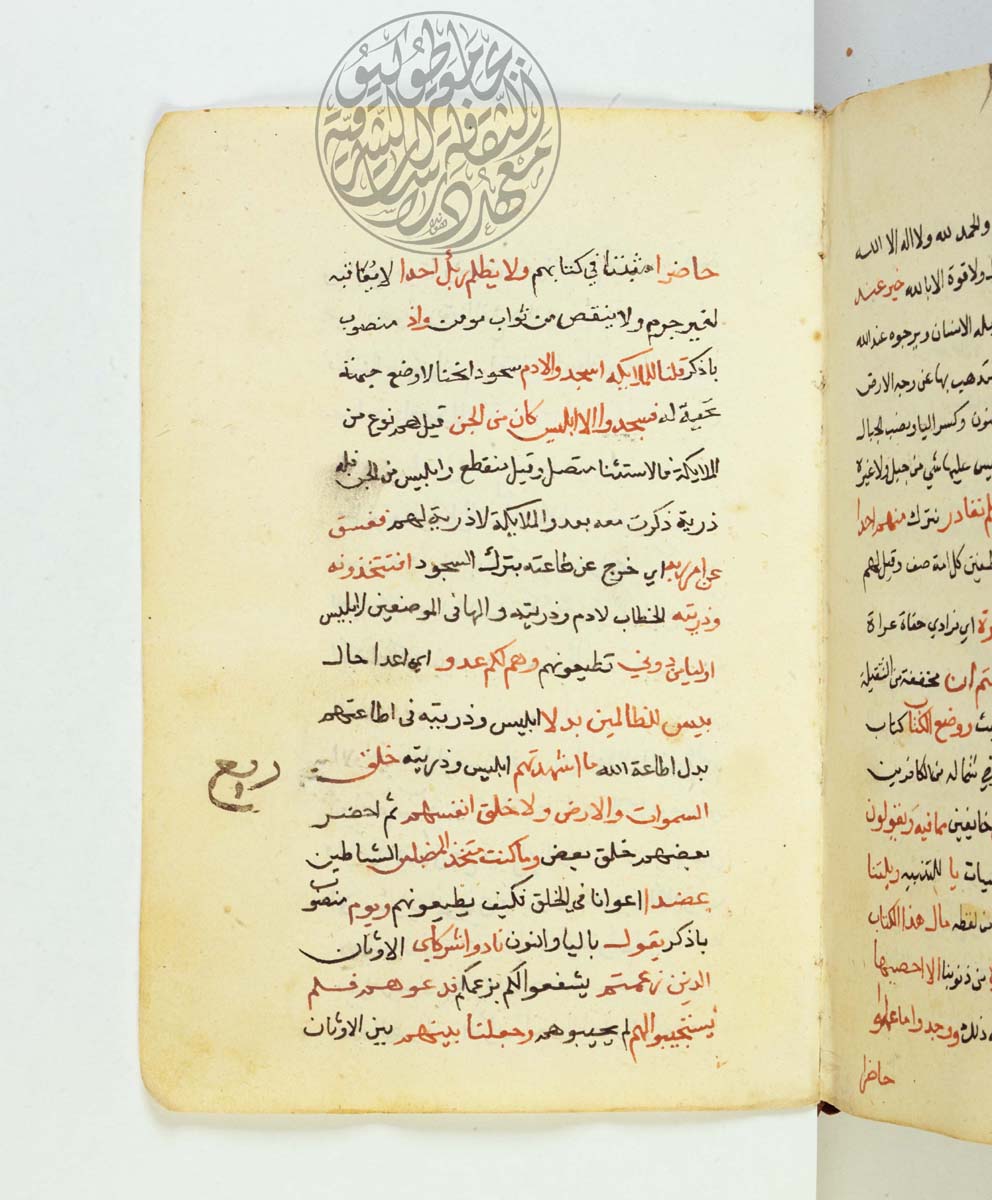 حاضرا مثبتنا في كتابهم ولا يظلم ربك احدا لا يعاقبه
لغير جرم ولا ينقص من ثواب مومن واذ منصوب
باذكر قلنا للملايكه اسجدوا لادم سجود انحنا لا وضع جبهة
تحية له فسجدوا الا ابليس كان من الجن قيل هم نوع من
الملايكة فالاستثنا متصل وقيل منقطع وابليس من الجن فله
ذرية ذكرت معه بعد والملايكة لا ذرية لهم ففسق
عن امر ربه اي خرج عن طاعته بترك السجود افتتخذونه
وذريته الخطاب لادم وذريته والها في الموضعين لابليس
اوليا من دوني تطيعونهم وهم لكم عدو اي اعدا حال
بيس للظالمين بدلا ابليس وذريته في اطاعتهم
بدل اطاعة الله ما اشهدتهم ابليس وذريته خلق
ربع
السموات والارض ولا خلق انفسهم ثم احضر
بعضهم خلق بعض وما كنت متخذ المضلين الشياطين
عضدا اعوانا في الخلق فكيف يطيعونهم ويوم منصوب
باذكر يقول باليا والنون نادوا شركاي الاوثان
الذين زعمتم يشفعوا لكم بزعمكم فدعوهم فلم
يستجيبوا لهم لم يجيبوهم وجعلنا بينهم بين الاوثان
والحمد لله ولا اله الا الله
ولا قوة الا بالله خير عند
يله الانسان ويرجوه عند الله
تذهب بها عن وجه الارض
نون وكسر اليا ونصب الجبال
يس عليها شي من جبل ولا غيره
لم نغادر نترك منهم احدا
طفين كل امة صف وقيل لهم
رة اي فرادي حفاة عراة
تم ان مخففة من الثقيلة
ووضع الكتاب كتاب
شماله من الكافرين
خايفين مما فيه ويقولون
يات يا للتنبيه ويلتنا
لفظه مال هذا الكتاب
من ذنوبنا الا احصيها
ذلك ووجدوا ما عملوا
حاضرا
معهد الثقافة والدراسات الشرقية جامعة طوكيو